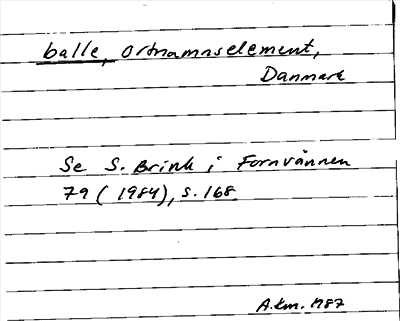 balle, ortnamnselement,
Danmark
Se S. Brink i Fornvännen
79 (1984), s. 168.
A.km. 1987